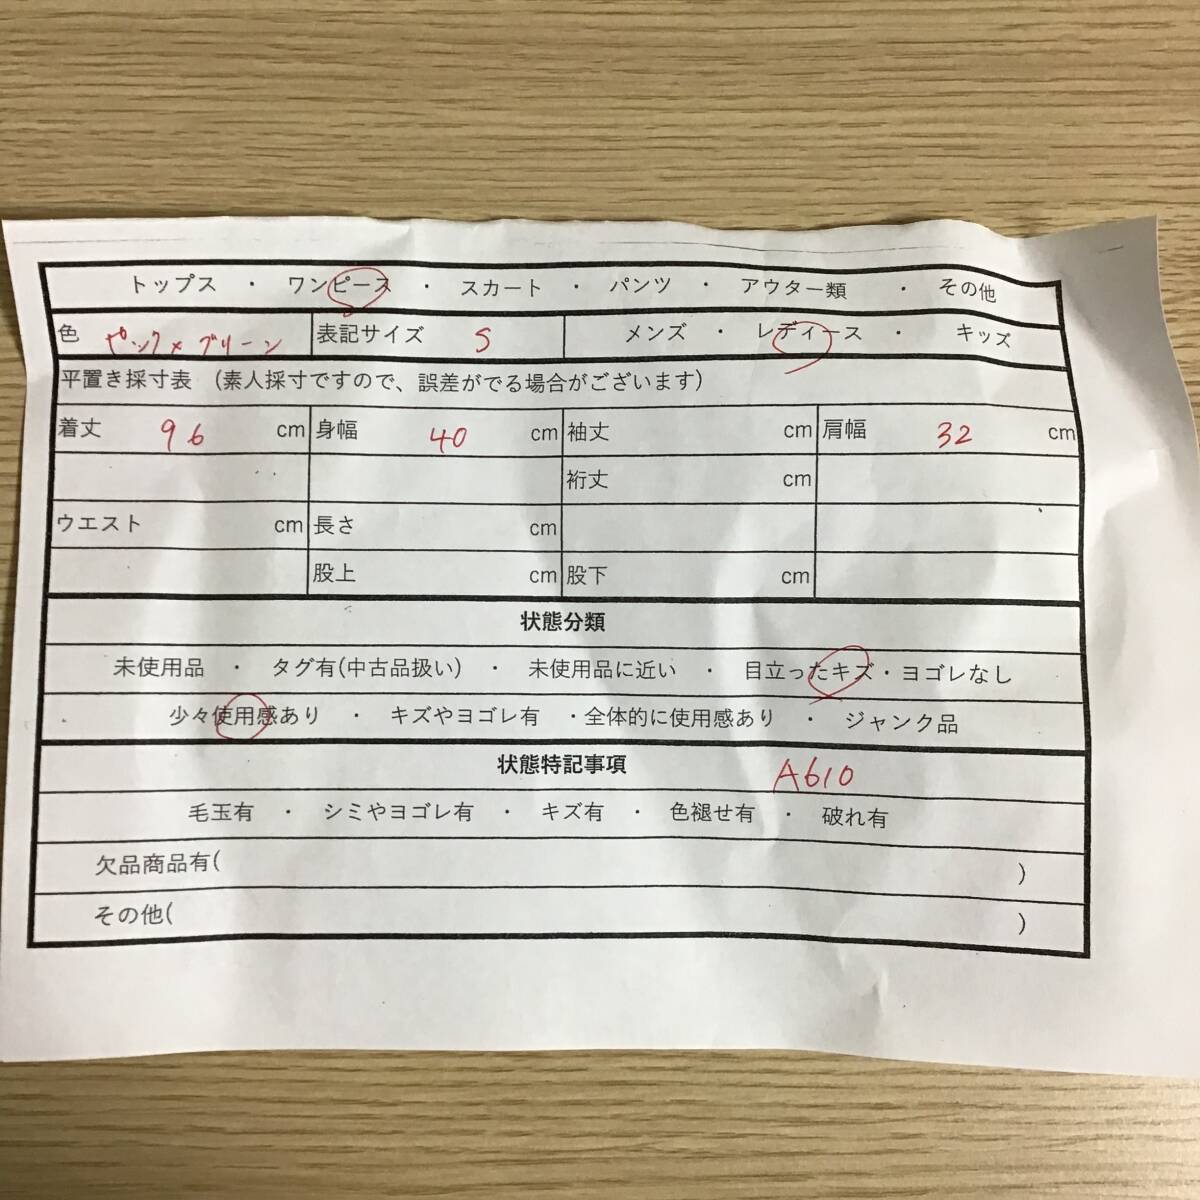 トップス ・ ワンピース ・ スカート ・ パンツ ・ アウター類 ・ その他
色 ピンク×グリーン 表記サイズ S メンズ ・ レディース ・ キッズ
平置き採寸表 (素人採寸ですので、誤差がでる場合がございます)
着丈 96 cm 身幅 40 cm 袖丈 cm 肩幅 32 cm
裄丈 cm
ウエスト cm 長さ cm
股上 cm 股下 cm
状態分類
未使用品 ・ タグ有(中古品扱い) ・ 未使用品に近い ・ 目立ったキズ・ヨゴレなし
少々使用感あり ・ キズやヨゴレ有 ・全体的に使用感あり ・ ジャンク品
状態特記事項 A610
毛玉有 ・ シミやヨゴレ有 ・ キズ有 ・ 色褪せ有 ・ 破れ有
欠品商品有( )
その他( )